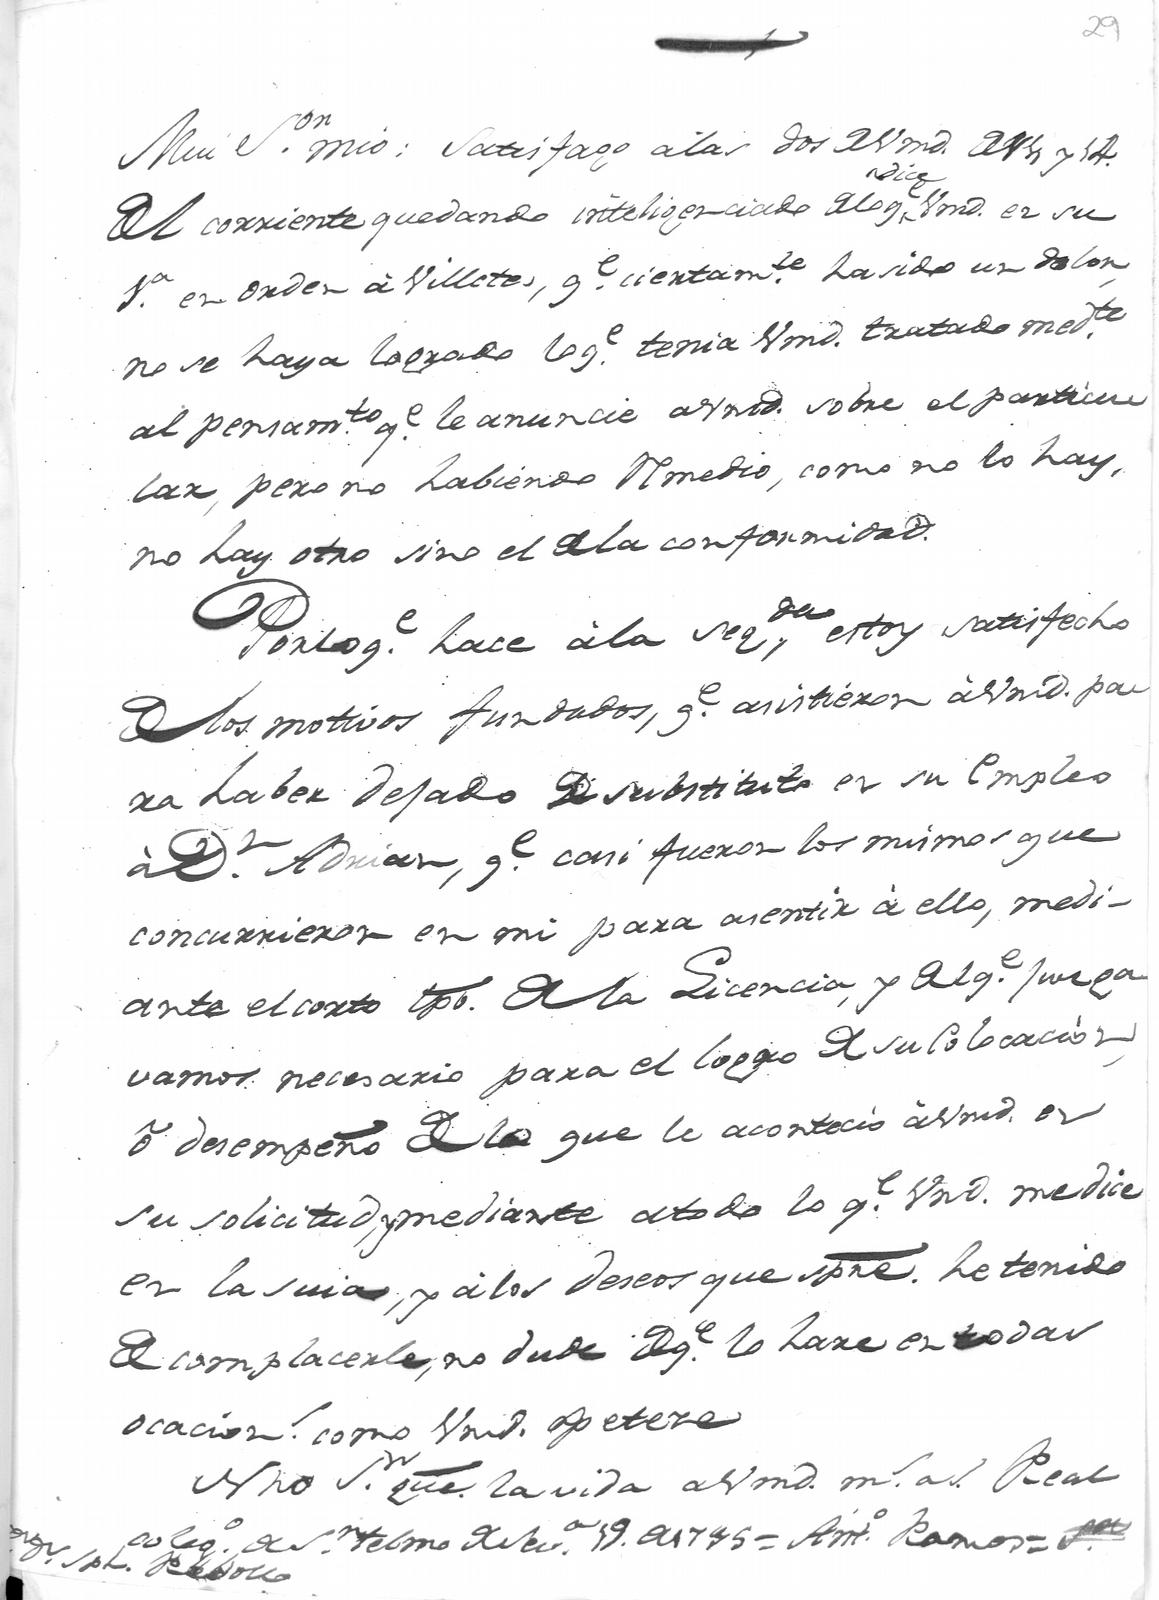 29
Mui S.or mio: satisfago a las dos de Vmd. de
del corriente quedando inteligenciado de lo q.e dice Vmd. en su
1.a en orden à Villetes, q.e ciertam.te ha sido un dolor,
no se haya logrado lo q.e tenia Vmd. tratado med.te
al pensam.to q.e le anuncie a Vmd. sobre el particu
lar, pero no habiendo Remedio, como no lo hay,
no hay otro sino el de la conformidad.
Por lo q.e hace à la seg.da, estoy satisfecho
de los motivos fundados, q.e asistieron à Vmd. pa
ra haber dejado de substituto en su Empleo
à D.n Adrian, q.e casi fueron los mismos que
concurrieron en mi para asentir à ello, medi-
ante el corto tpō. de la Licencia, y del q.e Juzga
vamos necesario para el logro de su Colocación,
ō desempeño de lo que le acontecio à Vmd. en
su solicitud, y mediante a todo lo q.e Vmd. me dice
en la suia, y à los deseos que spre. he tenido
de complacerle, no dude de q.e lo hare en todas
ocacion.s como Vmd. apetere
Nro S.or gūe. la vida a Vmd. m.s a.s Real
coleg.o de S.n Telmo de Sev.a de 1785 = Ant.o Ramos =